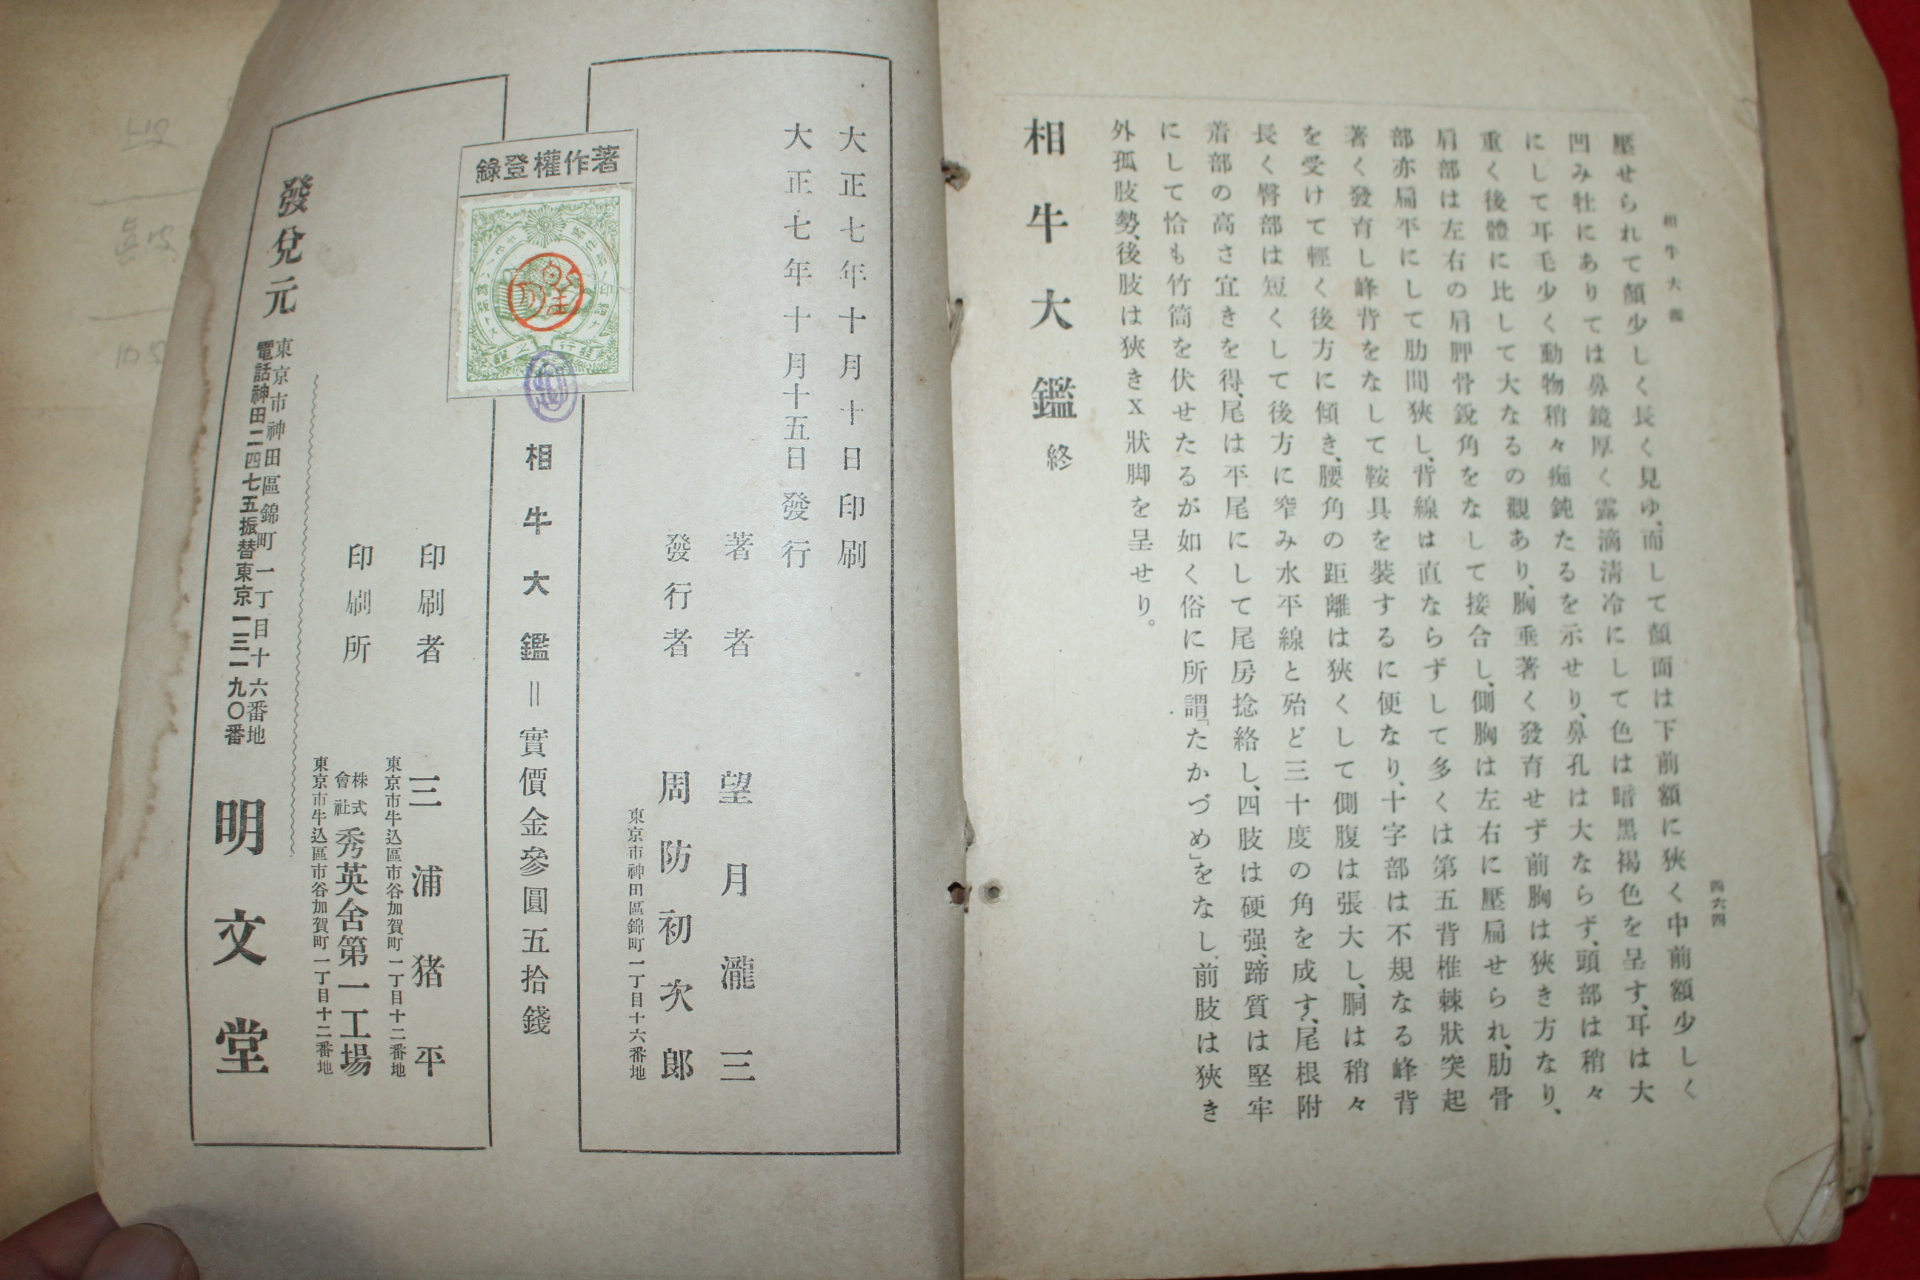 相牛大鑑
四六四
壓せられて顏少しく長く見ゆ、而して顏面は下前額に狹く中前額少しく
凹み牡にありては鼻鏡厚く露滴淸冷にして色は暗黑褐色を呈す、耳は大
にして耳毛少く動物稍々痴鈍たるを示せり、鼻孔は大ならず、頭部は稍々
重く後體に比して大なるの觀あり、胸垂著く發育せず前胸は狹き方なり、
肩部は左右の肩胛骨銳角をなして接合し、側胸は左右に壓扁せられ、肋骨
部亦扁平にして肋間狹し、背線は直ならずして多くは第五背椎棘狀突起
著く發育し峰背をなして鞍具を裝するに便なり、十字部は不規なる峰背
を受けて輕く後方に傾き、腰角の距離は狹くして側腹は張大し、胴は稍々
長く臀部は短くして後方に窄み水平線と殆ど三十度の角を成す、尾根附
着部の高さ宜きを得、尾は平尾にして尾房捻絡し、四肢は硬强、蹄質は堅牢
にして恰も竹筒を伏せたるが如く俗に所謂「たかづめ」をなし、前肢は狹き
外狐肢勢、後肢は狹きX狀脚を呈せり。
相牛大鑑 終
大正七年十月十日印刷
大正七年十月十五日發行
著者 望月瀧三
發行者 周防初次郎
東京市神田區錦町一丁目十六番地
著作權登錄
相牛大鑑＝實價金參圓五拾錢
印刷者 三浦猪平
東京市牛込區市谷加賀町一丁目十二番地
印刷所 株式會社 秀英舍第一工場
東京市牛込區市谷加賀町一丁目十二番地
發兌元
東京市神田區錦町一丁目十六番地
電話神田二四七五振替東京一三一九〇番
明文堂